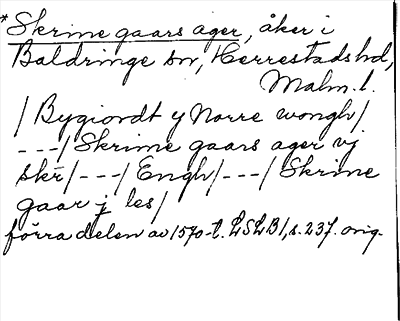 *Skrime gaars ager, åker i
Baldringe sn, Herrestads hd,
Malm. l.
/ Bygiordt y Norre wongh /
---/ Skrime gaars ager vj
skr̄ /---/ Engh /---/ Skrime
gaar j les /
förra delen av 1570-t. LSLB1, s. 237. orig.